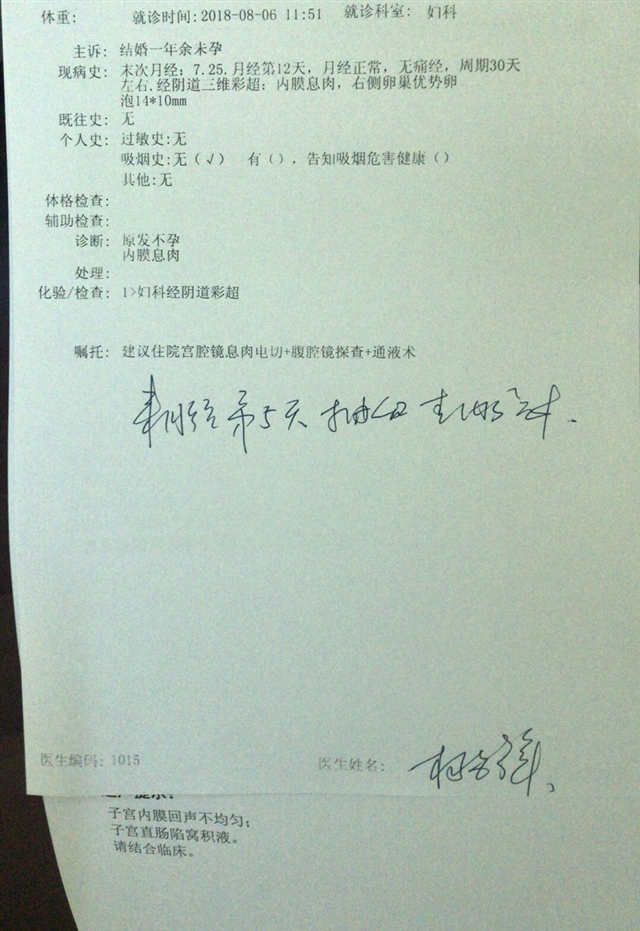 体重： 就诊时间:2018-08-06 11:51 就诊科室： 妇科
主诉: 结婚一年余未孕
现病史: 末次月经：7.25.月经第12天，月经正常，无痛经，周期30天
左右.经阴道三维彩超：内膜息肉，右侧卵巢优势卵
泡14*10mm
既往史: 无
个人史: 过敏史:无
吸烟史:无（√） 有（），告知吸烟危害健康（）
其他:无
体格检查:
辅助检查:
诊断: 原发不孕
内膜息肉
处理:
化验/检查: 1>妇科经阴道彩超
嘱托: 建议住院宫腔镜息肉电切+腹腔镜探查+通液术
来月经第5天抽血
医生编码: 1015 医生姓名:
子宫内膜回声不均匀；
子宫直肠陷窝积液。
请结合临床。